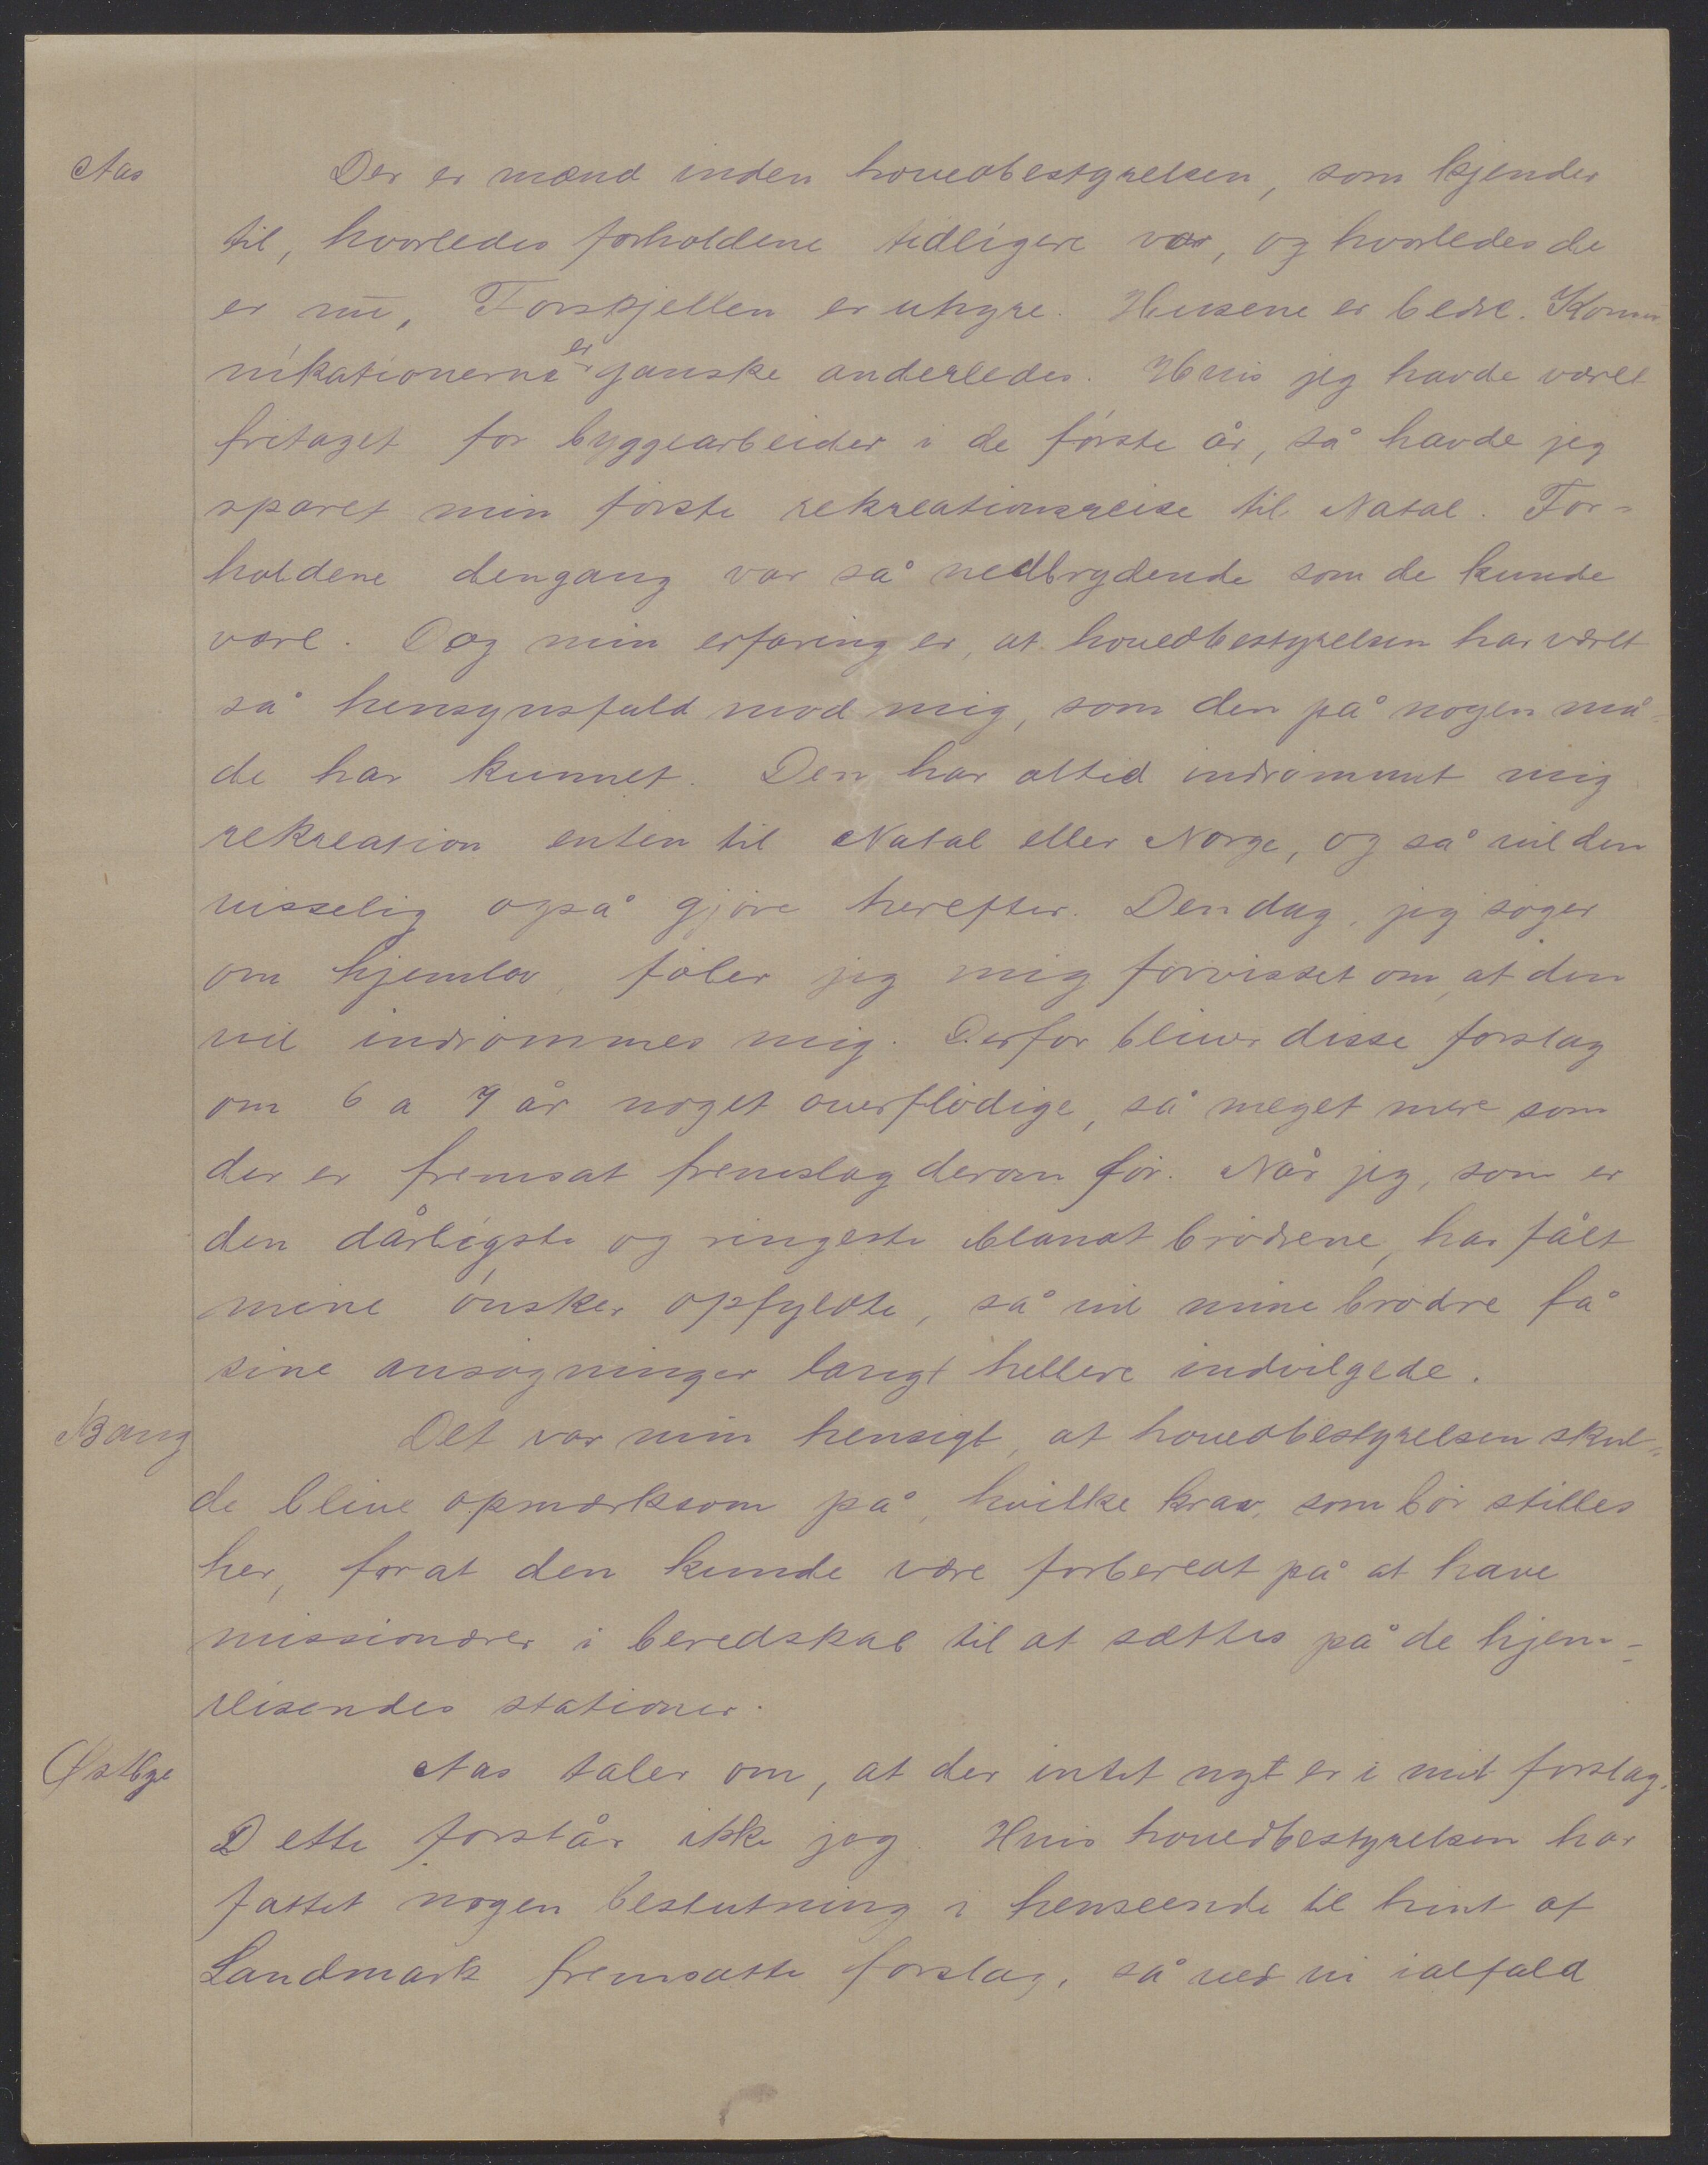 Aas Der er mænd inden hovedbestyrelsen, som kjender
til, hvorledes forholdene tidligere var, og hvorledes de
er nu, Forskjellen er uhyre. Husene er bedre. Kommu
nikationerne er ganske anderledes. Hvis jeg havde været
fritaget for byggearbeider i de første år, så havde jeg
sparet min første rekreationsreise til Natal. For-
holdene dengang var så nedbrydende som de kunde
være. Og min erfaring er, at hovedbestyrelsen har været
så hensynsfuld mod mig, som den på nogen må
de har kunnet. Den har altid indrømmet mig
rekreasion enten til Natal eller Norge, og så vil den
visselig også gjøre herefter. Den dag, jeg søger
om hjemlov, føler jeg mig forvisset om, at den
vil indrømmes mig. Derfor bliver disse forslag
om 6 a 7 år noget overflødige, så meget mere som
der er fremsat fremslag derom før. Når jeg, som er
den dårligste og ringeste iblandt brødrene, har fået
mine ønsker opfyldte, så vil mine brødre få
sine ansøgninger langt hellere indvilgede.
Bang Det var min hensigt, at hovedbestyrelsen skul-
de blive opmærksom på, hvilke krav, som bør stilles
her, forat den kunde være forberedt på at have
missionærer i beredskab til at sættes på de hjem-
reisendes stationer.
Østbye Aas taler om, at der intet nyt er i mit forslag.
Dette forstår ikke jeg. Hvis hovedbestyrelsen har
fattet nogen beslutning i henseende til hint af
Landmark fremsatte forslag, så ved vi ialfald